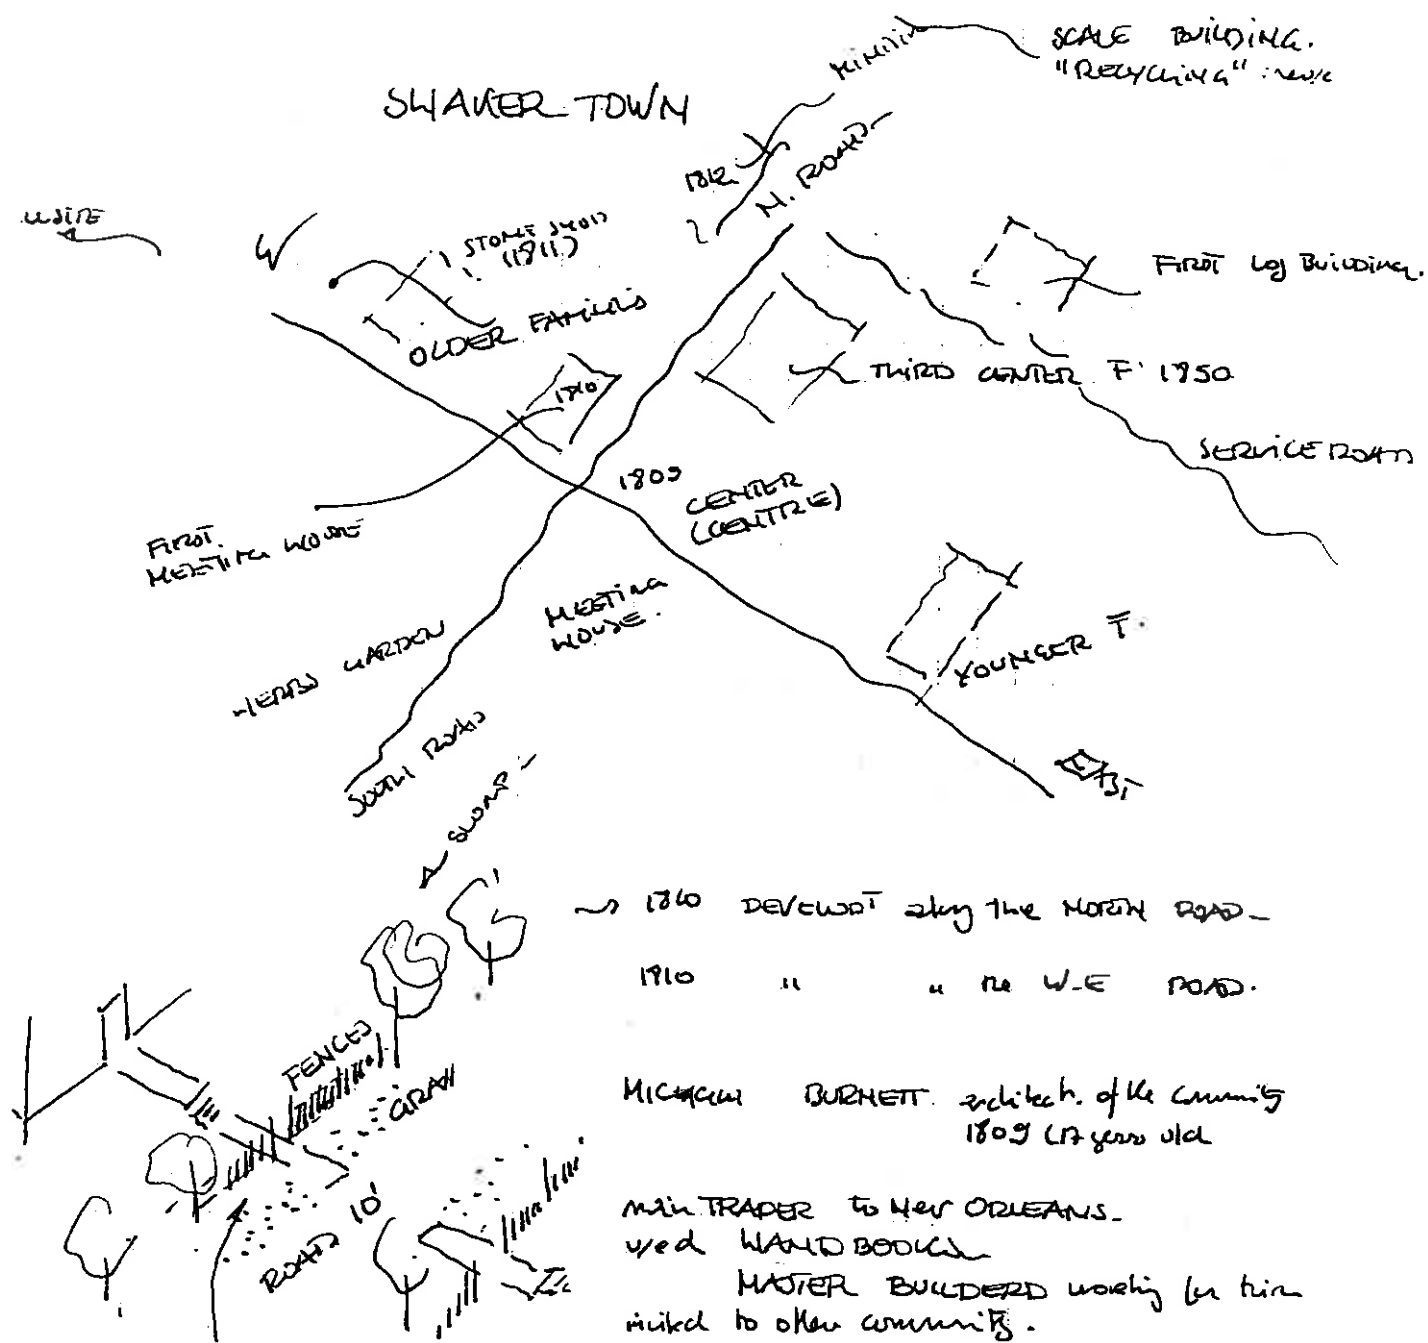 SCALE BUILDING.
"RECYCLING"
SHAKER TOWN
N. ROAD
1812
W
STONE SHOP
(1811)
OLDER FAMILIES
FIRST LOG BUILDING.
1810
THIRD CENTER F. 1850
SERVICE ROAD
1809
CENTER
(CENTRE)
FIRST.
MEETING HOUSE
MEETING
HOUSE.
HERBS GARDEN
YOUNGER F.
SOUTH ROAD
EAST
SLOPE
1860 DEVELOPT along the NORTH ROAD
1810 " " the W-E ROAD.
FENCES
GRASS
BURNETT. architect. of the community
1809 (17 years old
ROAD 10'
main TRADER to New ORLEANS
used HANDBOOKS
MASTER BUILDERS working for him
to other community.